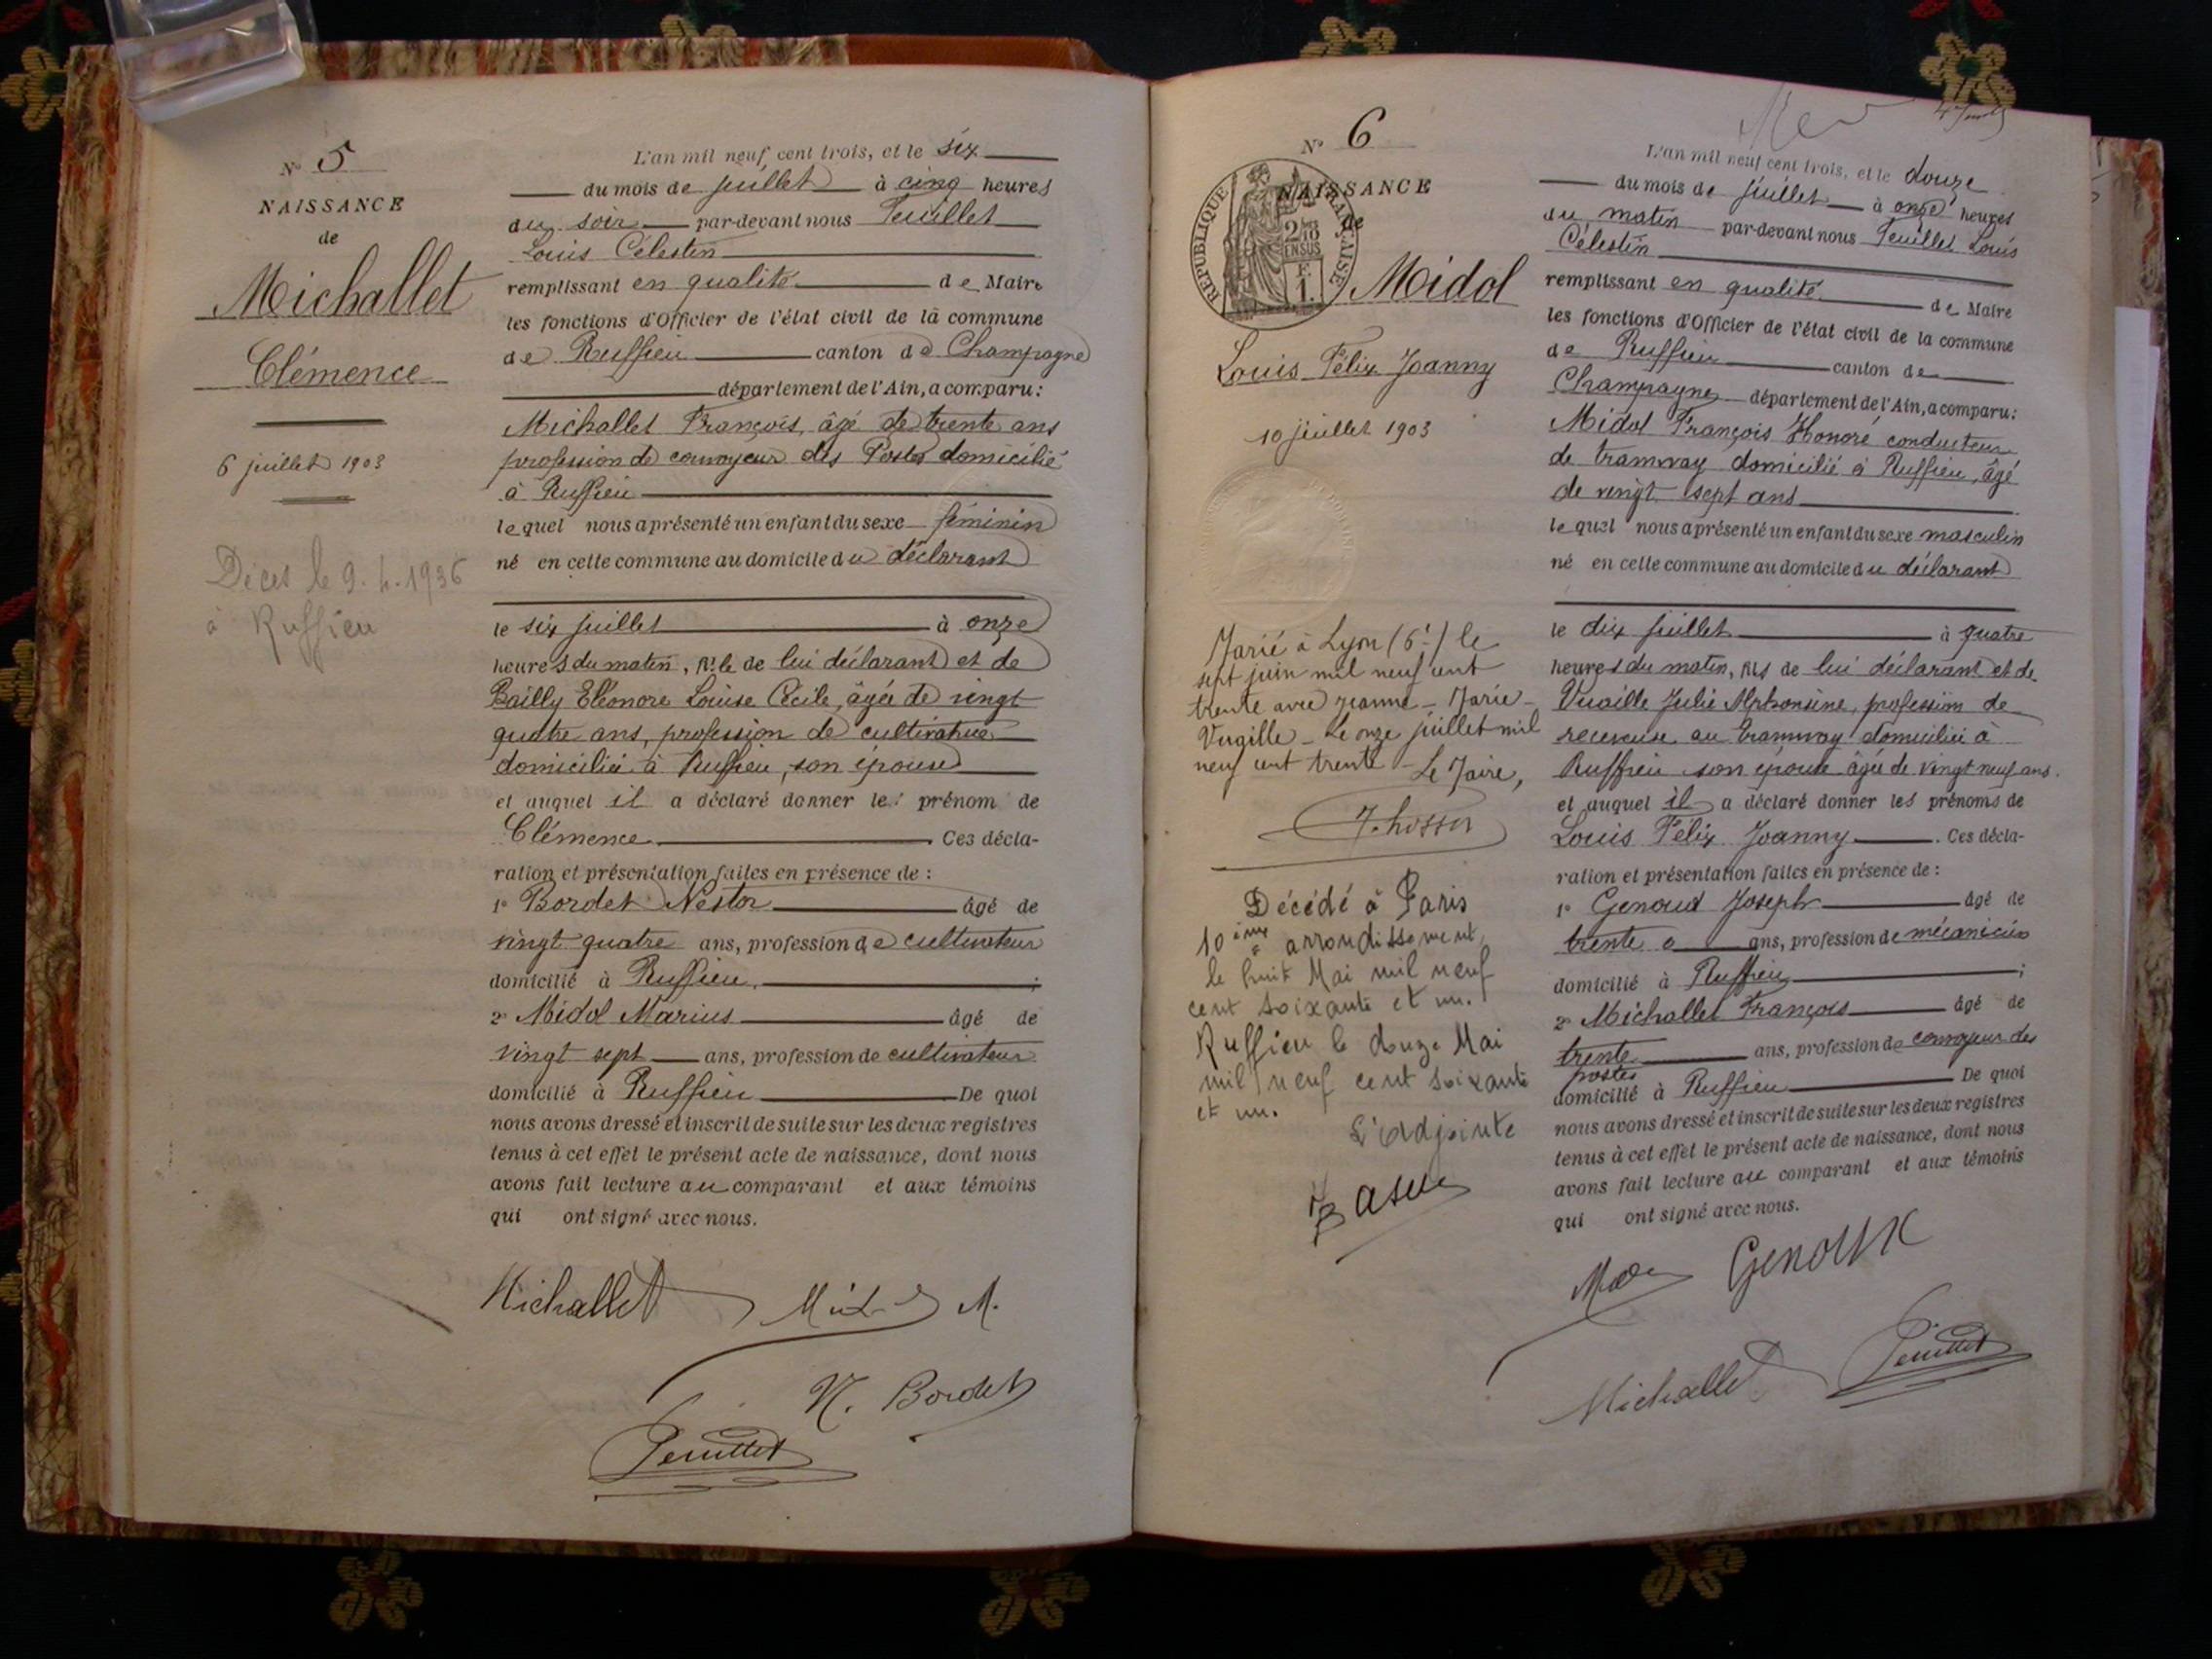 N° 5
NAISSANCE
de
Michallet
Clémence
6 juillet 1903
Décès le 9.4.1936
à Ruffieu
L'an mil neuf cent trois, et le six
du mois de juillet à cinq heures
du soir par-devant nous Peuillet
Louis Célestin
remplissant en qualité de Maire
les fonctions d'Officier de l'état civil de la commune
de Ruffieu canton de Champagne
département de l'Ain, a comparu:
Michallet François, âgé de trente ans
profession de convoyeur des Postes domicilié
à Ruffieu
lequel nous a présenté un enfant du sexe féminin
né en cette commune au domicile du déclarant
le six juillet à onze
heures du matin, fille de lui déclarant et de
Bailly Eléonore Louise Cécile, âgée de vingt
quatre ans, profession de cultivatrice
domiciliée à Ruffieu, son épouse
et auquel il a déclaré donner le prénom de
Clémence Ces décla-
ration et présentation faites en présence de :
1° Bordet Nestor âgé de
vingt quatre ans, profession de cultivateur
domicilié à Ruffieu. ;
2° Midol Marius âgé de
vingt sept ans, profession de cultivateur
domicilié à Ruffieu De quoi
nous avons dressé et inscrit de suite sur les deux registres
tenus à cet effet le présent acte de naissance, dont nous
avons fait lecture au comparant et aux témoins
qui ont signé avec nous.
Michallet Midol M.
N. Bordet
Peuillet
N° 6
NAISSANCE
de
RÉPUBLIQUE FRANÇAISE
Midol
Louis Félix Joanny
10 juillet 1903
Marié à Lyon (6e) le
sept juin mil neuf cent
trente avec Jeanne - Marie -
Vugille - Le onze juillet mil
neuf cent trente - Le Maire,
Décédé à Paris
10ième arrondissement,
le huit Mai mil neuf
cent soixante et un.
Ruffieu le douze Mai
mil neuf cent soixante
et un.
L'adjointe
L'an mil neuf cent trois, et le douze
du mois de juillet à onze heures
du matin par-devant nous Peuillet Louis
Célestin
remplissant en qualité de Maire
les fonctions d'Officier de l'état civil de la commune
de Ruffieu canton de
Champagne département de l'Ain, a comparu:
Midol François Honoré conducteur
de tramway domicilié à Ruffieu, âgé
de vingt sept ans
lequel nous a présenté un enfant du sexe masculin
né en cette commune au domicile du déclarant
le dix juillet à quatre
heures du matin, fils de lui déclarant et de
Vuaille Julie Alphonsine, profession de
receveuse au tramway domiciliée à
Ruffieu son épouse âgée de vingt neuf ans.
et auquel il a déclaré donner les prénoms de
Louis Félix Joanny . Ces décla-
ration et présentation faites en présence de :
1° Genoud Joseph âgé de
trente ans, profession de mécanicien
domicilié à Ruffieu ;
2° Michallet François âgé de
trente ans, profession de convoyeur des
postes
domicilié à Ruffieu De quoi
nous avons dressé et inscrit de suite sur les deux registres
tenus à cet effet le présent acte de naissance, dont nous
avons fait lecture au comparant et aux témoins
qui ont signé avec nous.
Michallet Peuillet